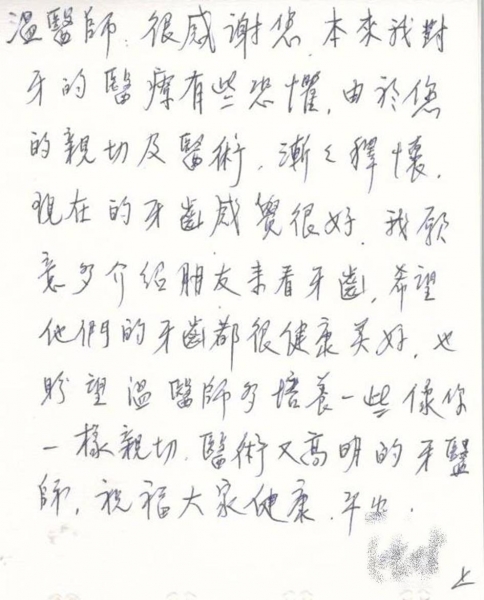 溫醫師:很感謝您,本來我對
牙的醫療有些恐懼,由於您
的親切及醫術,漸々釋懷,
現在的牙齒感覺很好,我願
意多介紹朋友来看牙齒,希望
他們的牙齒都很健康美好,也
盼望溫醫師多培養一些像你
一樣親切,醫術又高明的牙醫
師,祝福大家健康,平安.
上